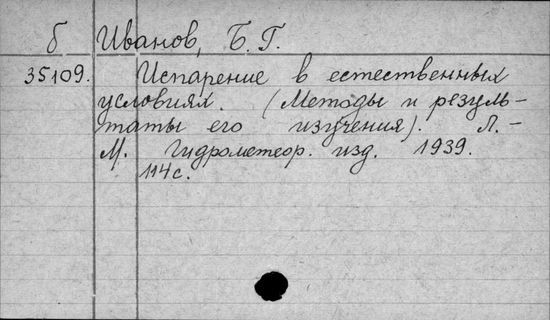 б Иванов, Б.Г.
35109. Испарение в естественных
условиях. (Методы и резуль-
таты его изучения). Л.-
М. Гидрометеор. изд. 1939.
114 с.